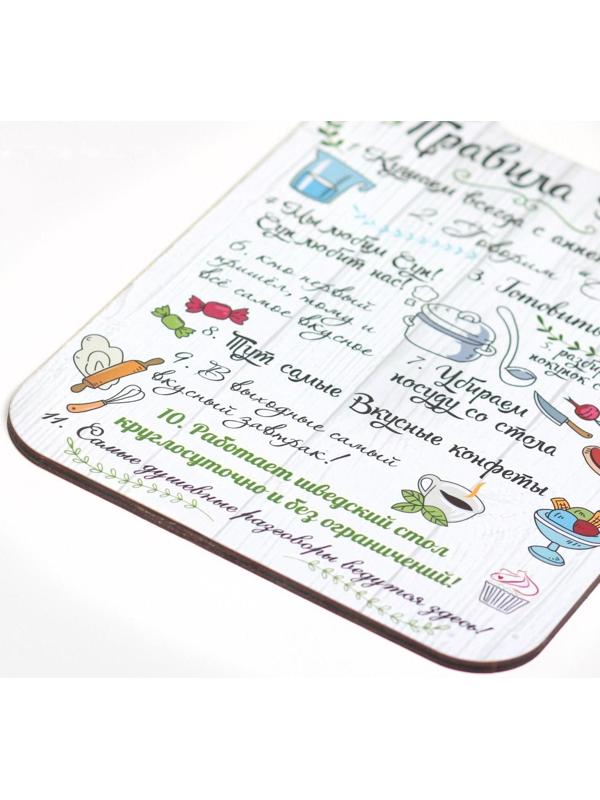 Правила
1. Кушаем всегда с аппе
2. Говорим
4. Мы любим Еду!
Еда любит нас!
3. Готовить
5. разби
покупок с
6. кто первый
пришёл, тому и
всё самое вкусное
7. Убираем
посуду со стола
8. Тут самые Вкусные конфеты
9. В выходные самый
вкусный завтрак!
10. Работает шведский стол
круглосуточно и без ограничений!
11. Самые душевные разговоры ведутся здесь!